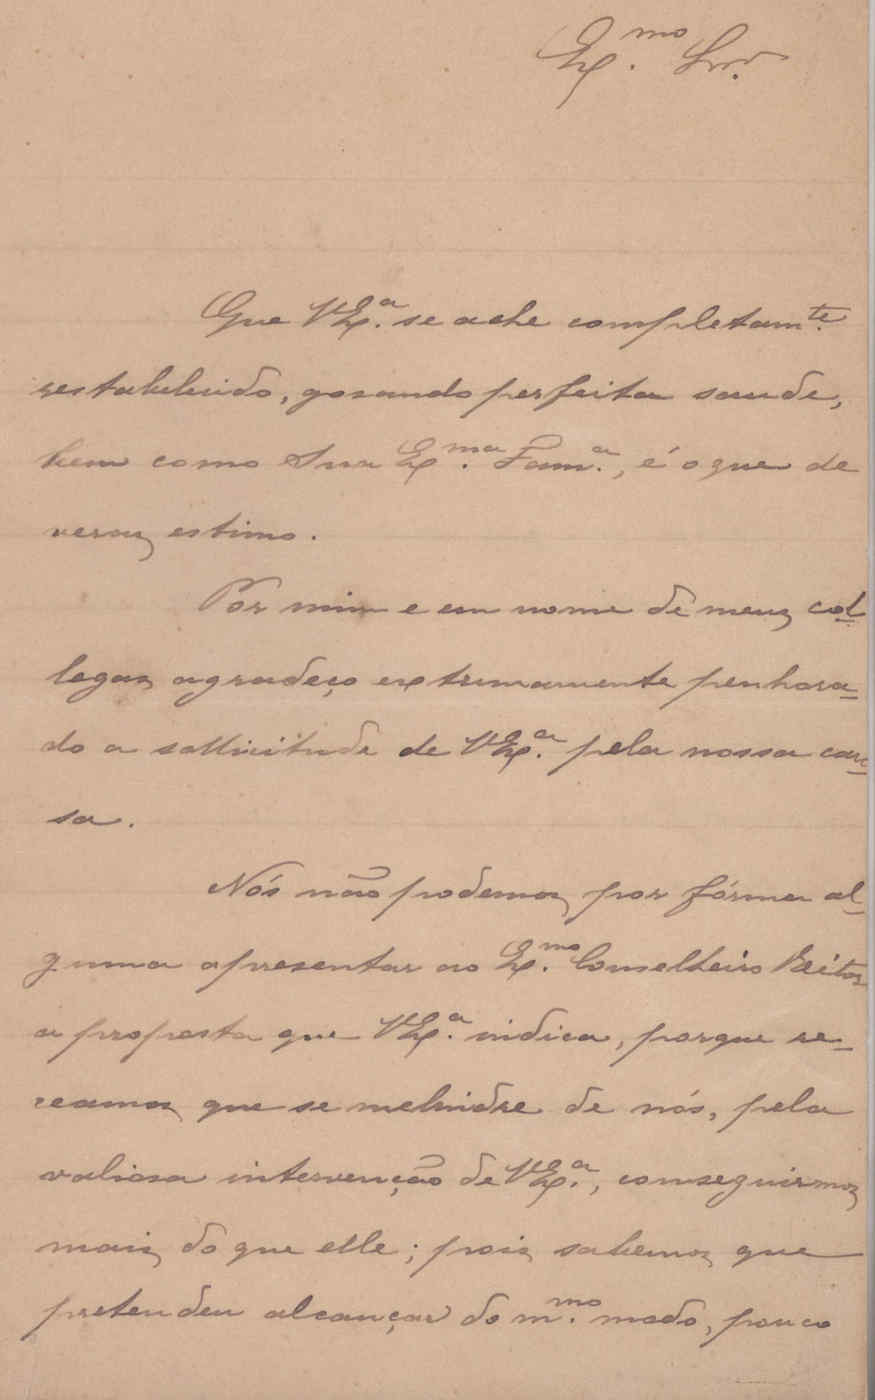 Ex.mo Snr.
Que V Ex.a se ache completam.te
restabelecido, gosando perfeita saude,
bem como Sua Ex.ma Fam.a, é o que de
veras estimo.
Por mim e em nome de meus col-
legas agradeço extremamente penhora-
do a sollicitude de V Ex.a pela nossa cau-
sa.
Nós não podemos por fórma al-
guma apresentar ao Ex.mo Conselheiro Reitor
a proposta que V Ex.a indica, porque re-
ceamos que se melindre de nós, pela
valiosa intervenção de V Ex.a, conseguirmos
mais do que elle; pois sabemos que
pretendeu alcançar do m.mo modo, pouco